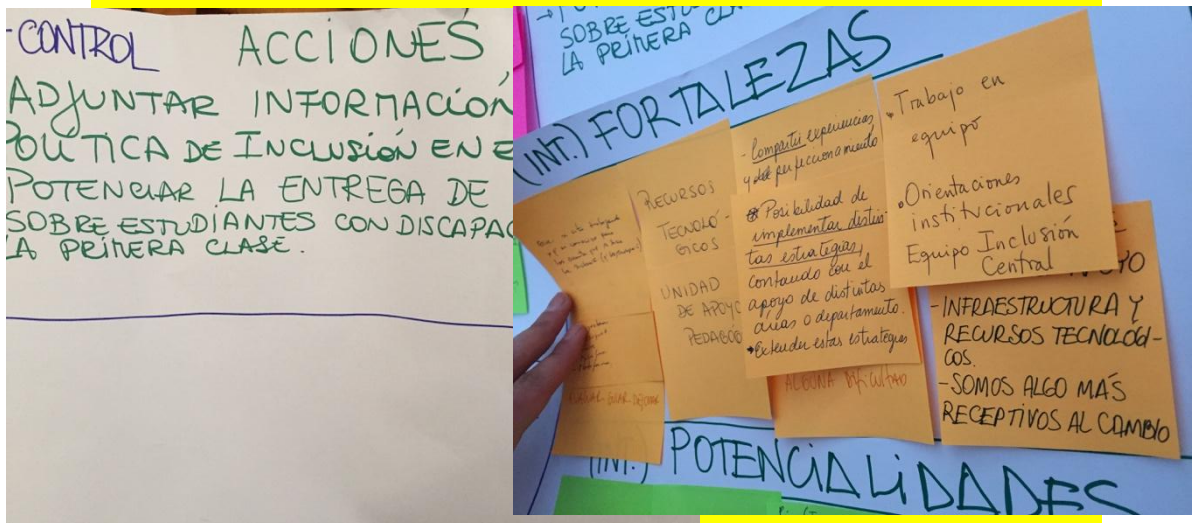 -CONTROL ACCIONES
ADJUNTAR INFORMACIÓN
POLITICA DE INCLUSIÓN EN E
POTENCIAR LA ENTREGA DE
SOBRE ESTUDIANTES CON DISCAPAC
LA PRIMERA CLASE.
SOBRE ESTU
LA PRIMERA CLA
(INT.) FORTALEZAS
RECURSOS
TECNOLÓ-
GICOS
UNIDAD
DE APOYO
PEDAGOG
- Compartir experiencias
y perfeccionamiento
Posibilidad de
implementar distin-
tas estrategias,
contando con el
apoyo de distintas
áreas o departamento.
Extender estas estrategias
ALGUNA DIFICULTAD
. Trabajo en
equipo
. Orientaciones
institucionales
Equipo Inclusión
Central
OYO
- INFRAESTRUCTURA Y
RECURSOS TECNOLÓGI-
COS.
- SOMOS ALGO MÁS
RECEPTIVOS AL CAMBIO
(INT.) POTENCIALIDADES